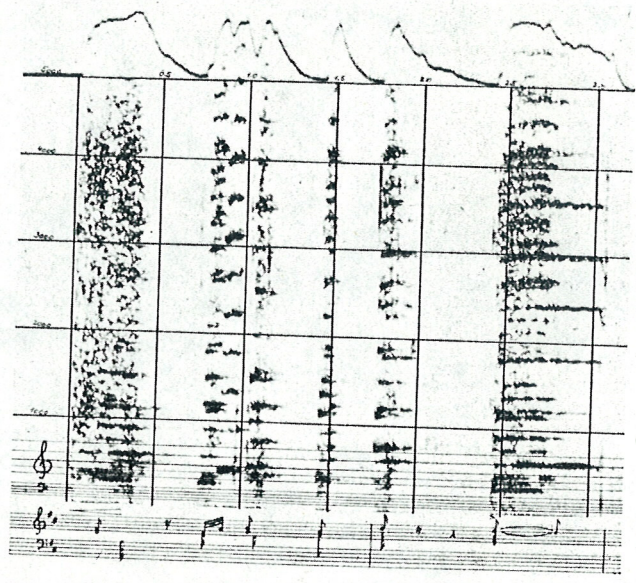 5000 0.5 1.0 1.5 2.0 2.5 3.0
4000
3000
2000
1000